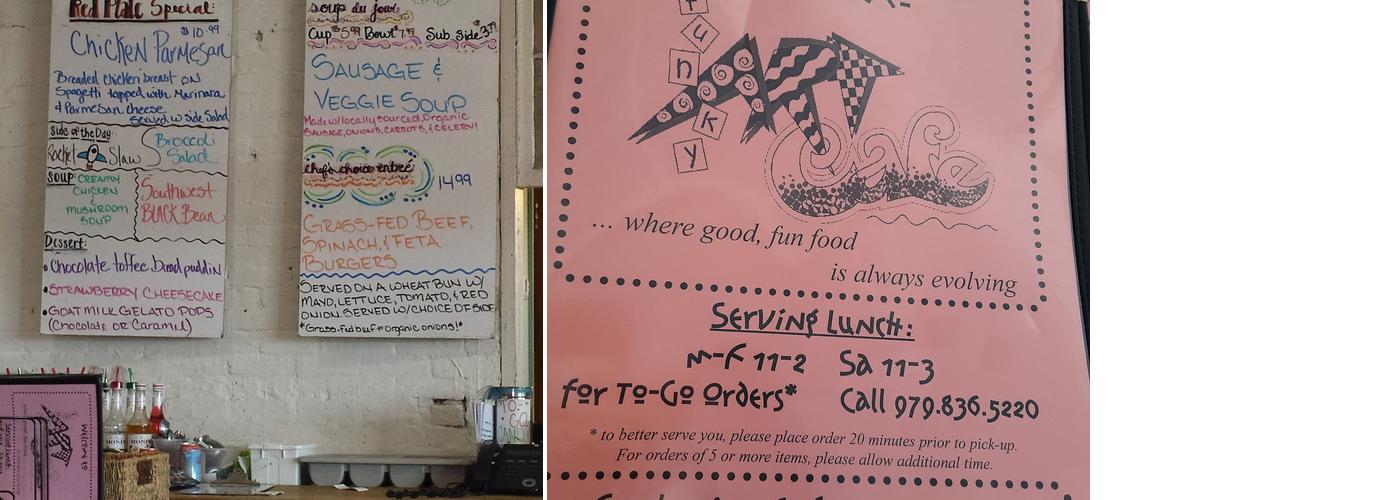 Red Plate Special:
$10.99
Chicken Parmesan
Breaded chicken breast on
Spagetti topped with Marinara
& Parmesan cheese
Served w side Salad
Side of the Day:
Rocket Slaw
Broccoli
Salad
Soup
CREAMY
CHICKEN
&
MUSHROOM
SOUP
Southwest
BLACK Bean
Dessert:
• Chocolate toffee bread puddin
• STRAWBERRY CHEESECAKE
• GOAT MILK GELATO POPS
(Chocolate OR Caramel)
soup du jour
Cup $5.99 Bowl $7.99 Sub side $3.99
SAUSAGE &
VEGGIE SOUP
Made w/locally sourced, Organic
SAUSAGE, ONIONS, CARROTS, & CELERY!
chef's choice entrée
14.99
GRASS-FED BEEF,
SPINACH, & FETA
BURGERS
SERVED ON A WHEAT BUN W/
MAYO, LETTUCE, TOMATO, & RED
ONION. SERVED W/CHOICE OF SIDE
*Grass-fed beef & organic onions!*
Welcome to
TO-
GO
MONIN
MONIN
u
n
k
y
Cafe
... where good, fun food
is always evolving
Serving Lunch:
M-F 11-2 Sa 11-3
for To-Go Orders* Call 979.836.5220
* to better serve you, please place order 20 minutes prior to pick-up.
For orders of 5 or more items, please allow additional time.